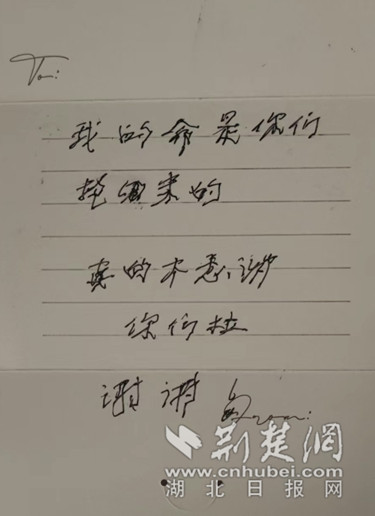 To:
我的命是你们
抢回来的
真的太感谢
你们拉
谢谢 From:
荆楚网
www.cnhubei.com
湖北日报网